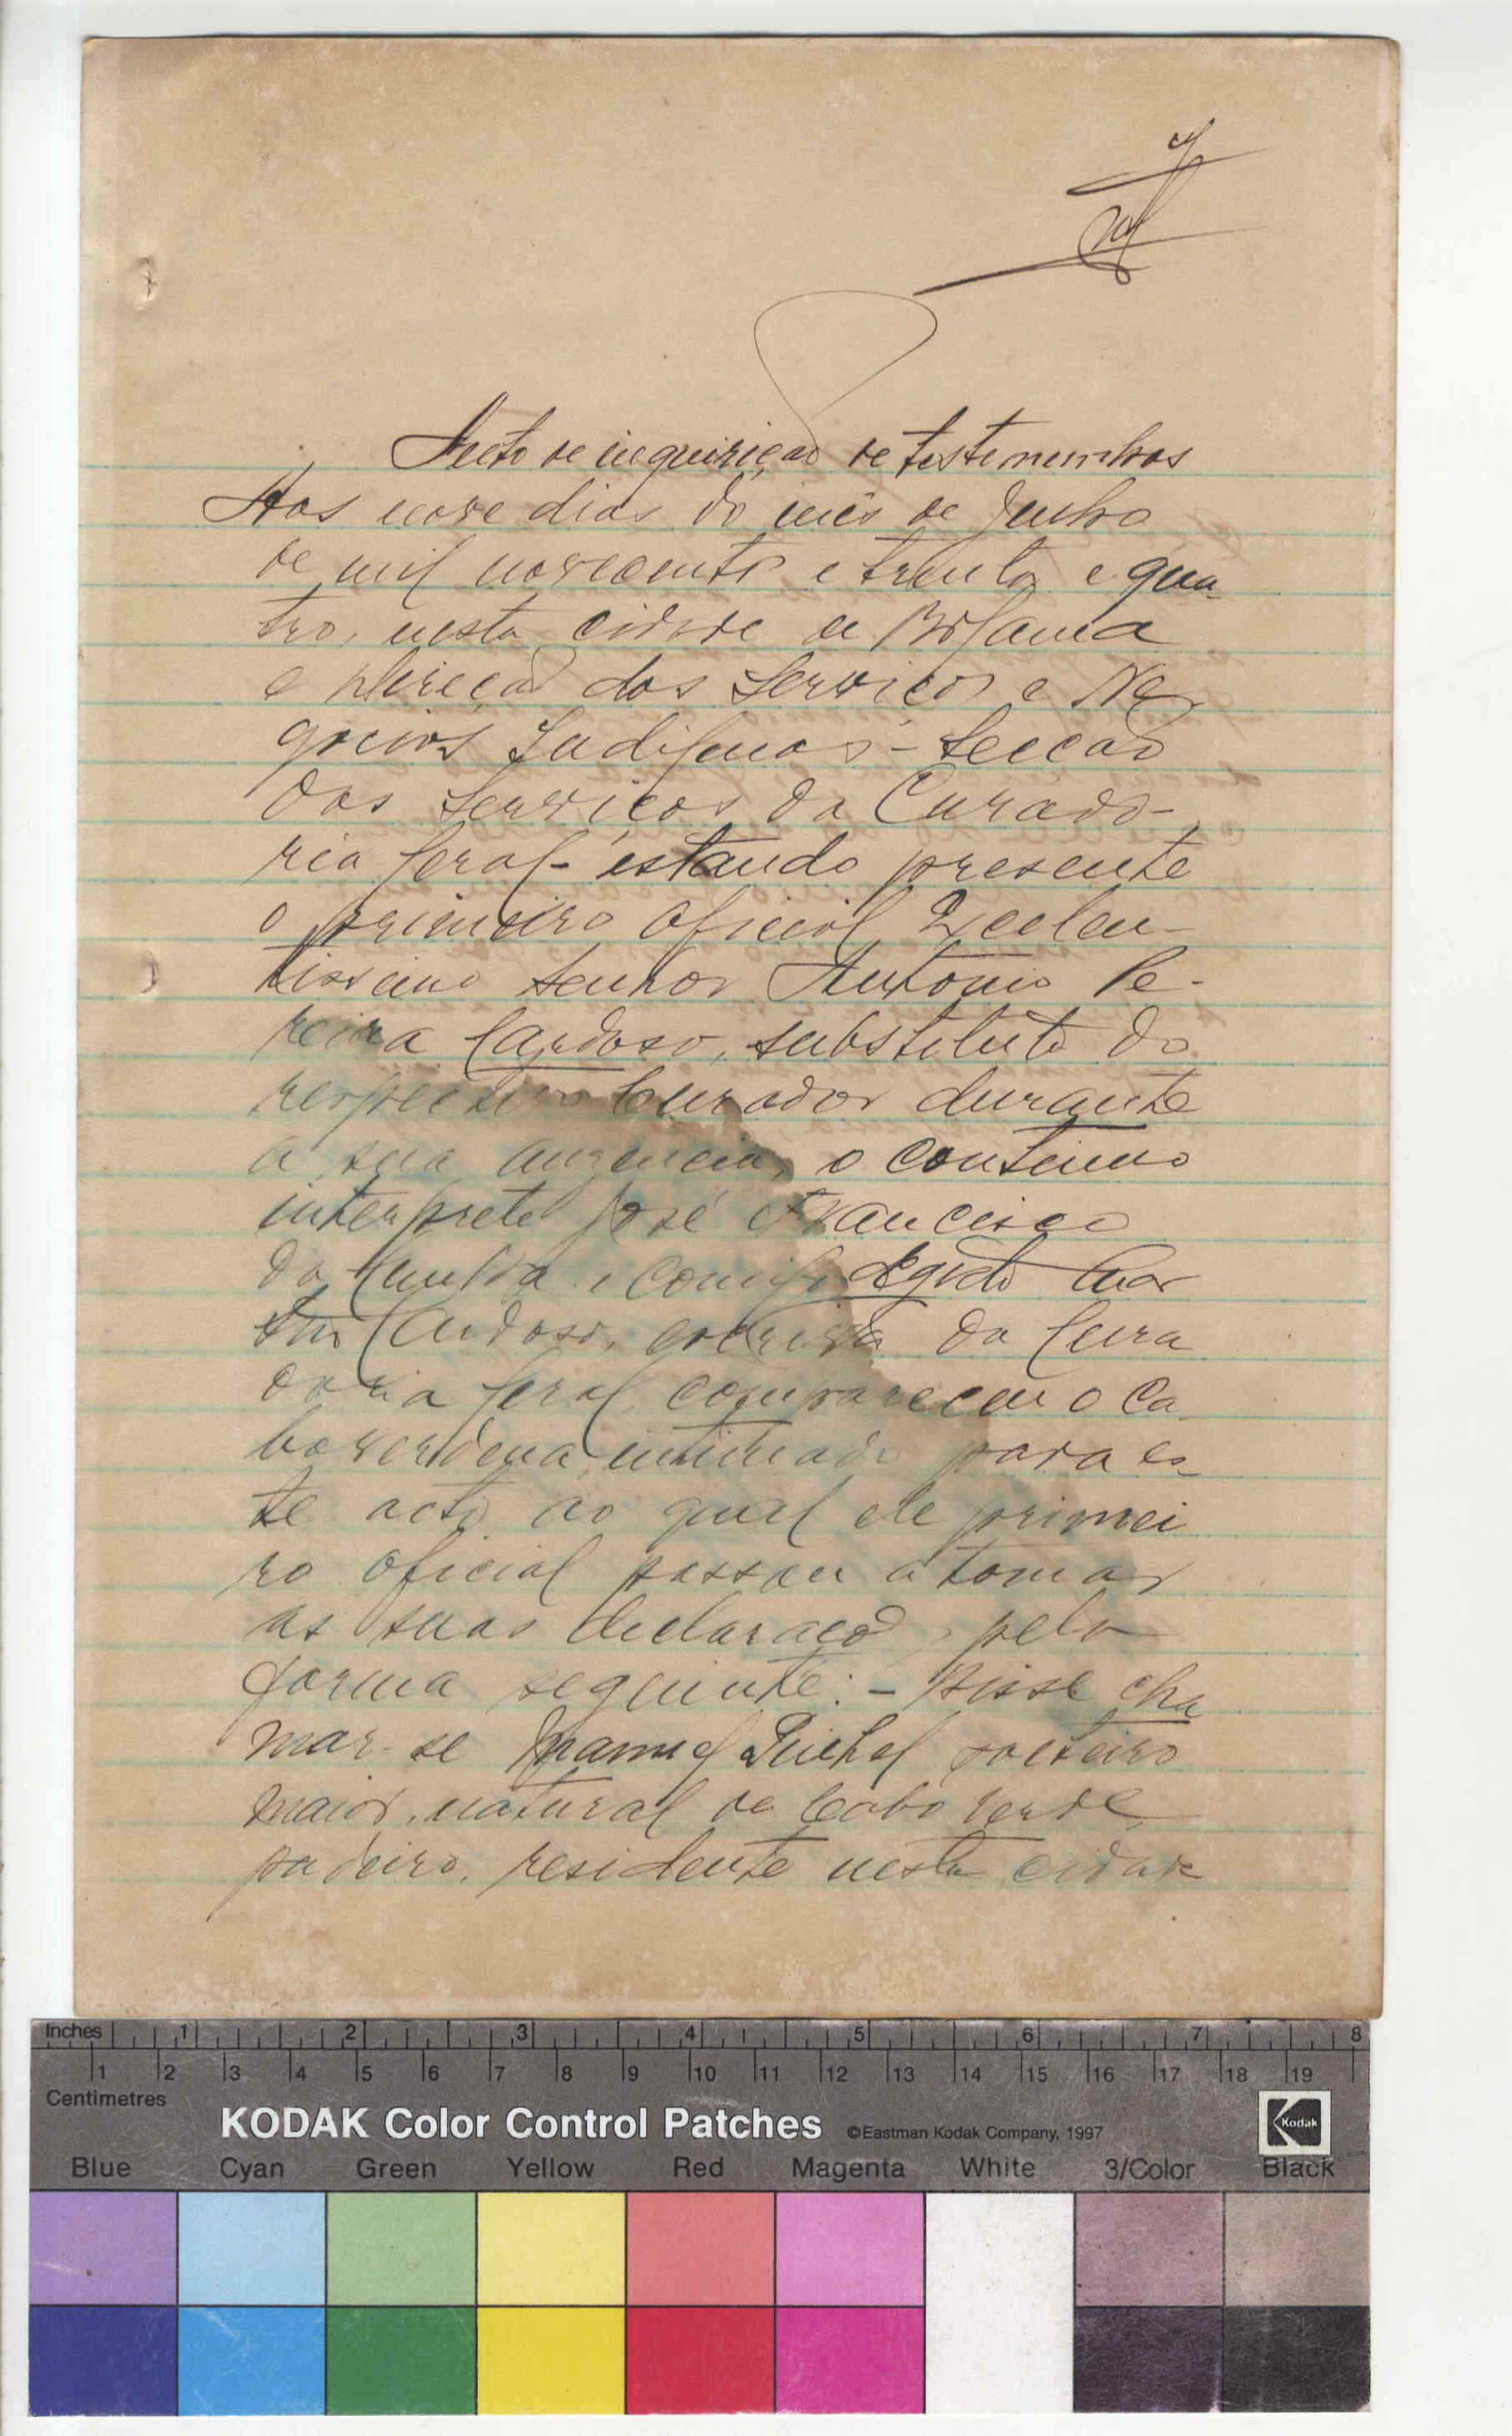 Auto de inquirição de testemunhas
Aos nove dias do mês de Junho
de mil novecentos e trenta e qua-
tro, nesta cidade de Bolama
e Direcção dos Serviços e Ne-
gocios Indigenas - Secção
dos Serviços da Curado-
ria Geral - estando presente
o primeiro oficial Excelen-
tissimo Senhor Antonio Pe-
reira Cardoso, substituto do
respectivo Curador durante
a sua auzencia, o continuo
interprete José Francisco
da Cunha e comigo
Cardoso, da Cura
doria Geral, compareceu o ca-
boverdeano intimado para es-
te acto ao qual ele primei
ro oficial passou a tomar
as suas declaraçoes, pela
forma seguinte: - Disse cha
mar-se Manuel solteiro
maior, natural de Cabo Verde,
padeiro, residente nesta cidade
Inches 1 2 3 4 5 6 7 8
1 2 3 4 5 6 7 8 9 10 11 12 13 14 15 16 17 18 19
Centimetres
KODAK Color Control Patches ©Eastman Kodak Company, 1997 Kodak
Blue Cyan Green Yellow Red Magenta White 3/Color Black